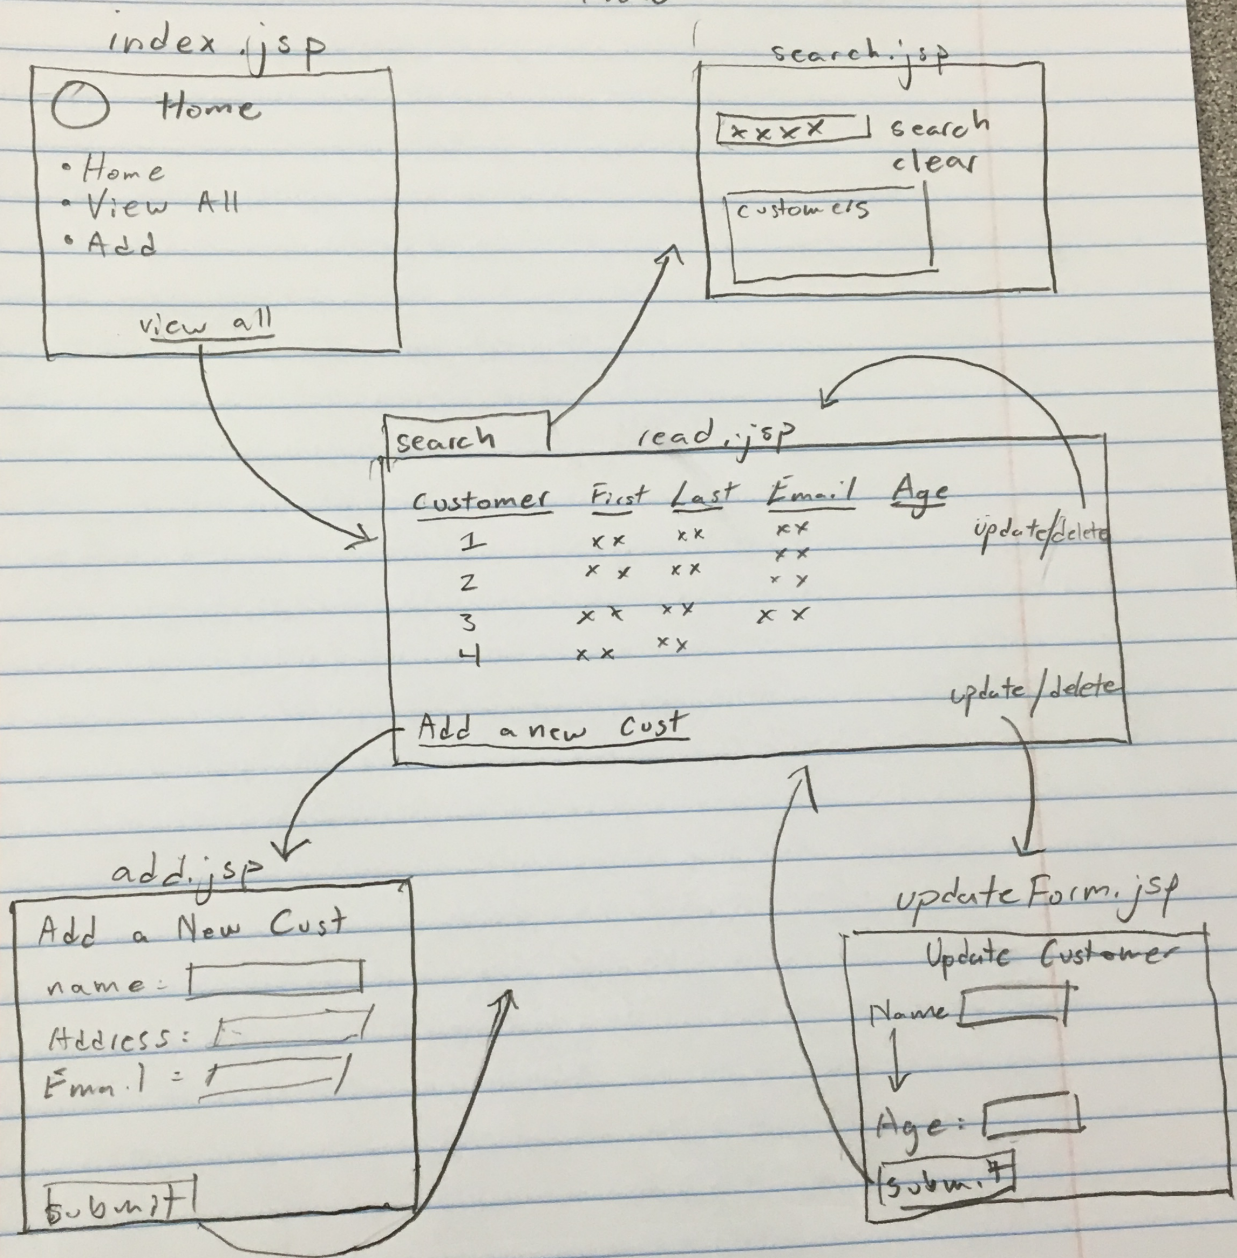 index.jsp
Home
• Home
• View All
• Add
view all
search.jsp
xxxx search
clear
customers
search
read.jsp
Customer First Last Email Age
1 xx xx xx update/delete
xx
2 xx xx xx
3 xx xx xx
4 xx xx
update/delete
Add a new Cust
add.jsp
Add a New Cust
name:
Address:
Email:
submit
updateForm.jsp
Update Customer
Name
Age:
submit